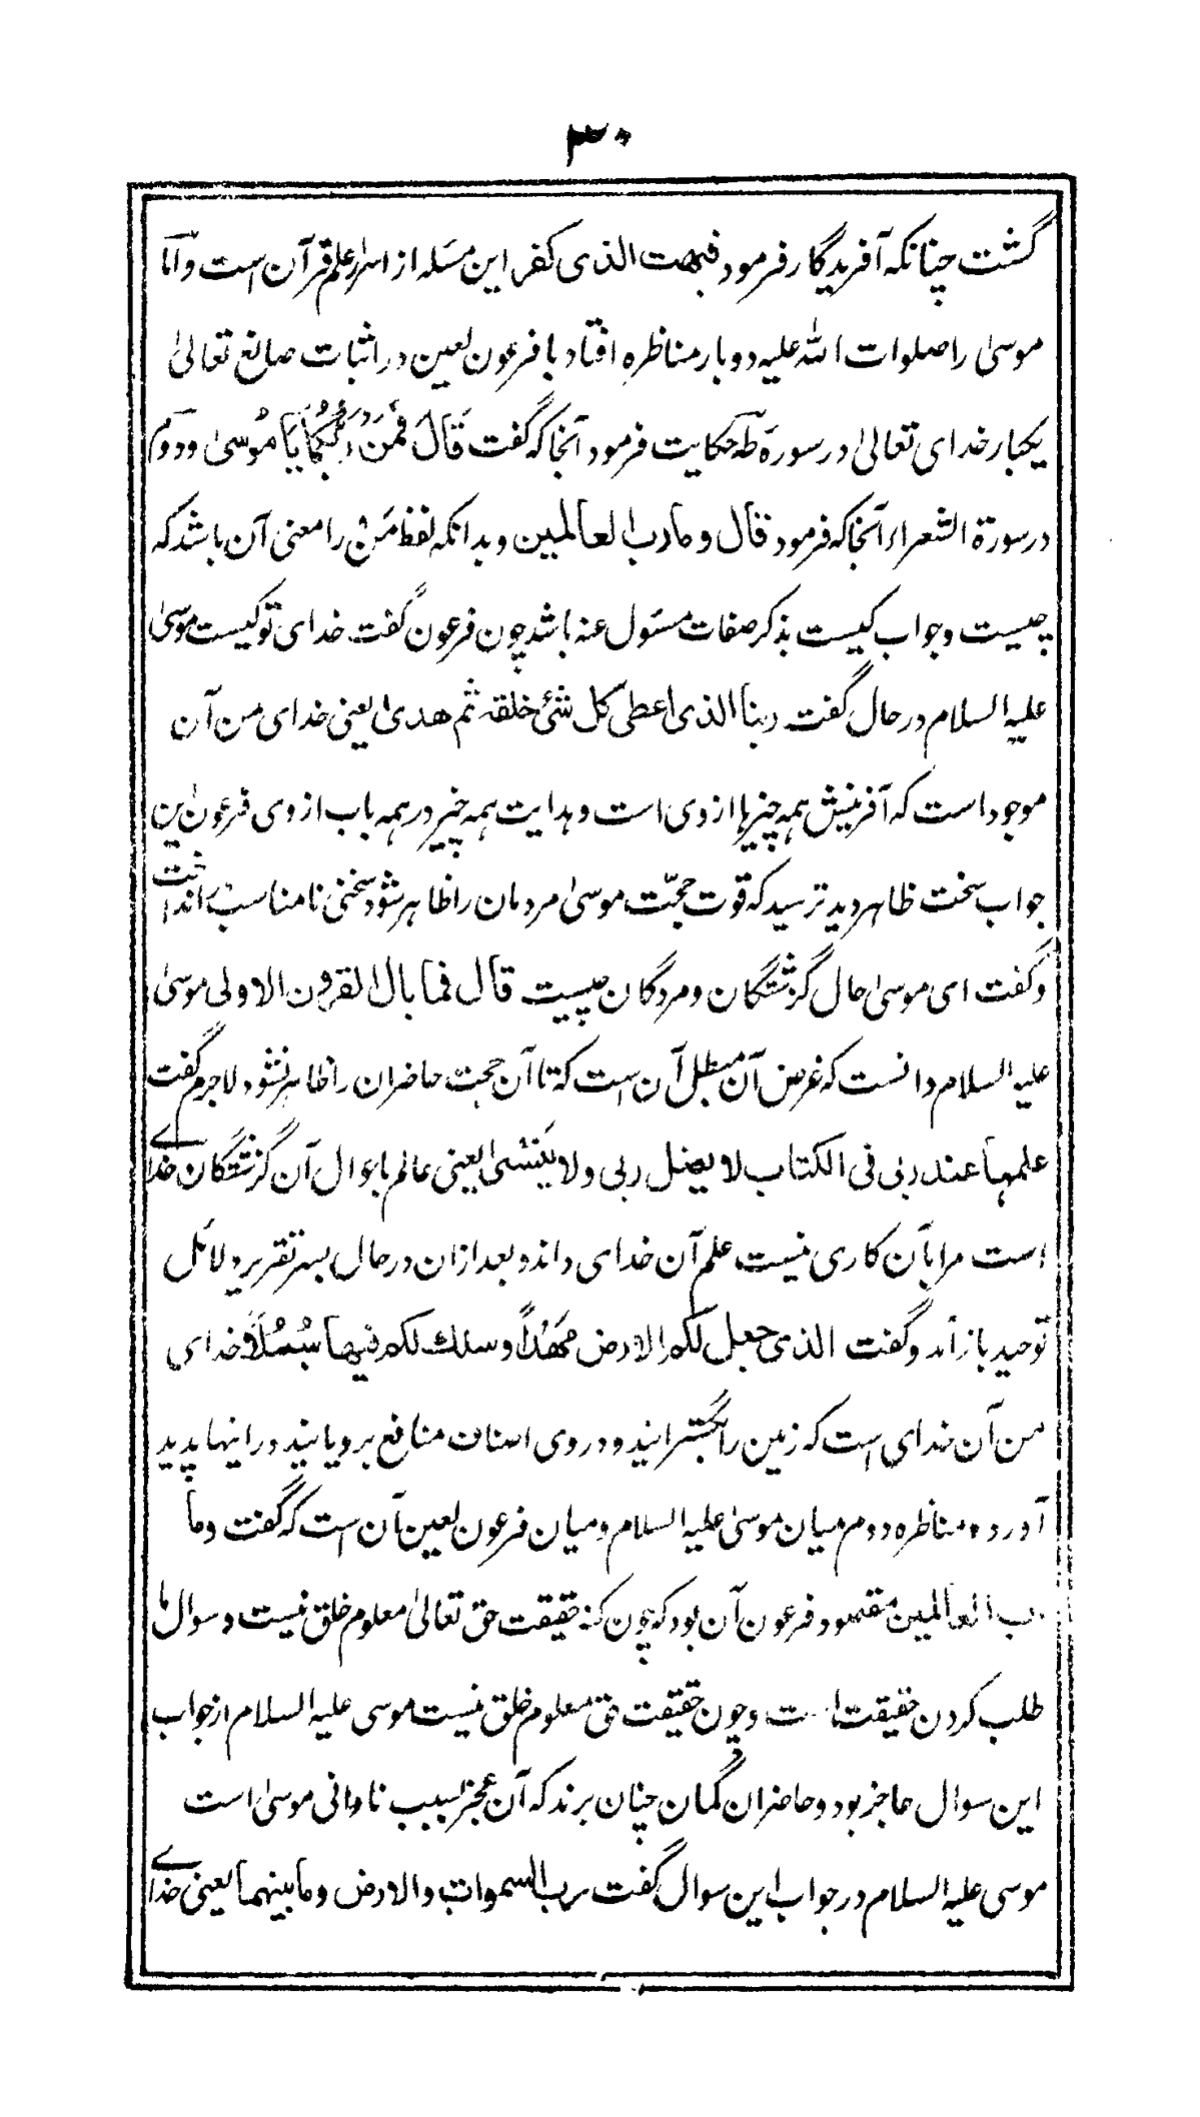 ۳۰
گشت چنانکه آفریدگار فرمود فبهت الذی کفر این مسٔله از اسرار علم قرآن است و اَمّا
موسیٰ را صلوات الله علیه دو بار مناظره افتاد با فرعون لعین در اثبات صانع تعالیٰ
یکبار خدای تعالیٰ در سورهٔ طه حکایت فرمود آنجا که گفت قَالَ فَمَنْ رَبُّکُمَا یَا مُوسیٰ و دوم
در سورة الشعراء آنجا که فرمود قال و ما رب العالمین و بدانکه لفظ مَنْ را معنی آن باشد که
چیست و جواب کیست بذکر صفات مسئول عنه باشد چون فرعون گفت خدای تو کیست موسیٰ
علیه السلام در حال گفت ربنا الذی اعطی کل شئ خلقه ثم هدیٰ یعنی خدای من آن
موجود است که آفرینش همه چیزها از وی است و هدایت همه چیز در همه باب از وی فرعون این
جواب سخت ظاهر دید ترسید که قوت حجّت موسیٰ مردمان را ظاهر شود سخنی نامناسب انداخت
و گفت ای موسیٰ حال گزشتگان و مردگان چیست قال فما بال القرون الاولی موسیٰ
علیه السلام دانست که غرض آن مبطل آن است که تا آن حجت حاضران را ظاهر نشود لاجرم گفت
علمها عند ربی فی الکتاب لا یضل ربی و لا یَنسٰی یعنی عالم باحوال آن گزشتگان خدای
است مرا بآن کاری نیست علم آن خدای داند و بعد ازان در حال بسر تقریر دلائل
توحید باز آمد و گفت الذی جعل لکم الارض مَهْدًا و سلك لکم فیها سُبُلًا و خدای
من آن خدای است که زمین را بگسترانید و در وی اصناف منافع برویانید و راینها پدید
آورده و مناظره دوم میان موسیٰ علیه السلام و میان فرعون لعین آن است که گفت و ما
رب العالمین مقصود فرعون آن بود که چون کنه حقیقت حق تعالیٰ معلوم خلق نیست و سوال ما
طلب کردن حقیقت است و چون حقیقت حق معلوم خلق نیست موسی علیه السلام از جواب
این سوال عاجز بود و حاضران گمان چنان برند که آن عجز بسبب نادانی موسیٰ است
موسی علیه السلام در جواب این سوال گفت رب السموات و الارض و ما بینهما یعنی خدای